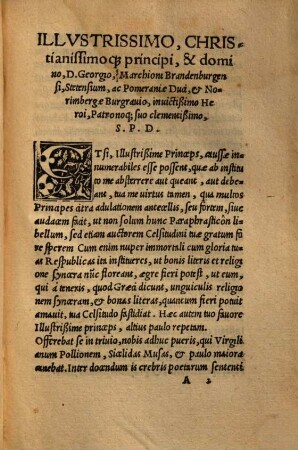 ILLVSTRISSIMO, CHRIS-
tianissimoq; principi, & domi
no, D. Georgio, Marchioni Brandenburgen
si, Stetensium, ac Pomeraniæ Duci, & No
rimbergæ Burgrauio, inuictißimo He
roi, Patronoq; suo clementißimo.
S. P. D.
ETsi, Illustrißime Princeps, caussæ in-
numerabiles esse possent, quæ ab institu
to me absterrere aut queant, aut debe-
ant, tua me uirtus tamen, qua multos
Principes citra adulationem antecellis, seu fortem, siue
audacem facit, ut non solum hunc Paraphrasticon li
bellum, sed etiam auctorem Celsitudini tuæ gratum fo
re sperem Cum enim nuper immortali cum gloria tuas
Respublicas ita institueres, ut bonis literis et religio
ne syncæra nũc floreant, ægre fieri potest, ut eum,
qui à teneris, quot Græci dicunt, unguiculis religio
nem synceram, & bonas literas, quancum fieri potuit
amauit, tua Celsitudo fastidiat. Hæc autem tuo fauore
Illustrißime princeps, altius paulo repetam.
Offerebat se in triuio, nobis adhuc pueris, qui Virgili
anum Pollionem, Siælidas Musas, & paulo maiora
canebat. Inter docendum is crebris poetarum sententi
A 2